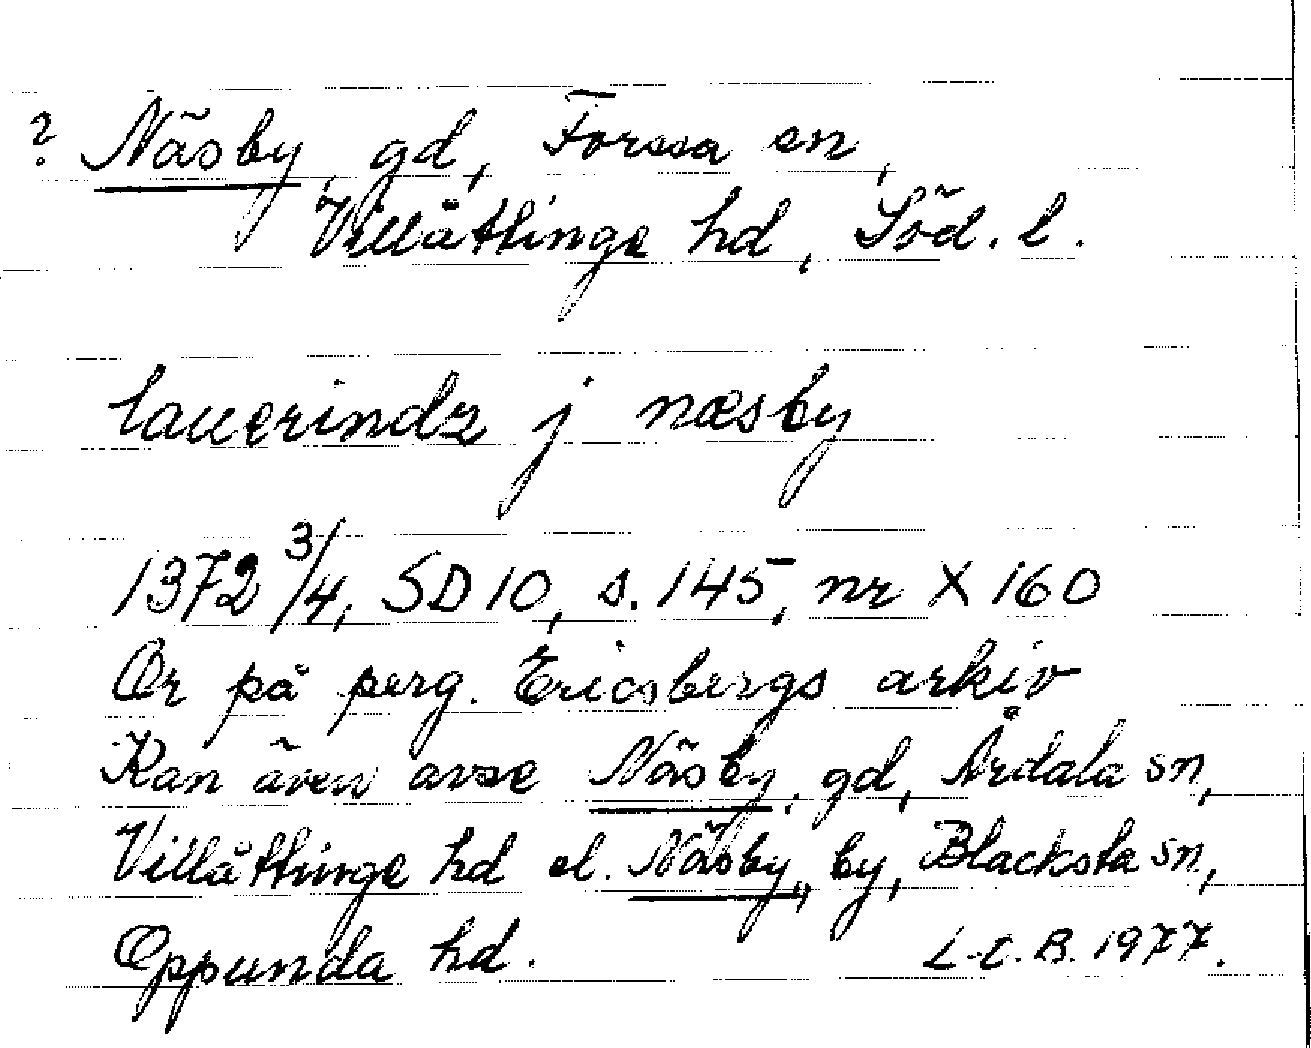 ? Näsby gd, Forssa sn,
Villåttinge hd, Söd. l.
lauerindz j næsby
1372 3/4, SD 10, s. 145, nr X 160
Or på perg. Ericsbergs arkiv
Kan även avse Näsby, gd, Årdala sn,
Villåttinge hd el. Näsby, by, Blacksta sn,
Oppunda hd. L-E. B. 1977.